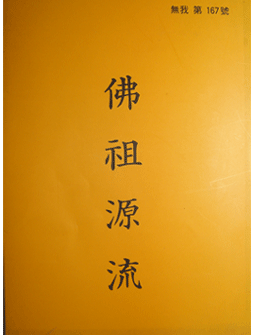 無我 第 167號
佛祖源流